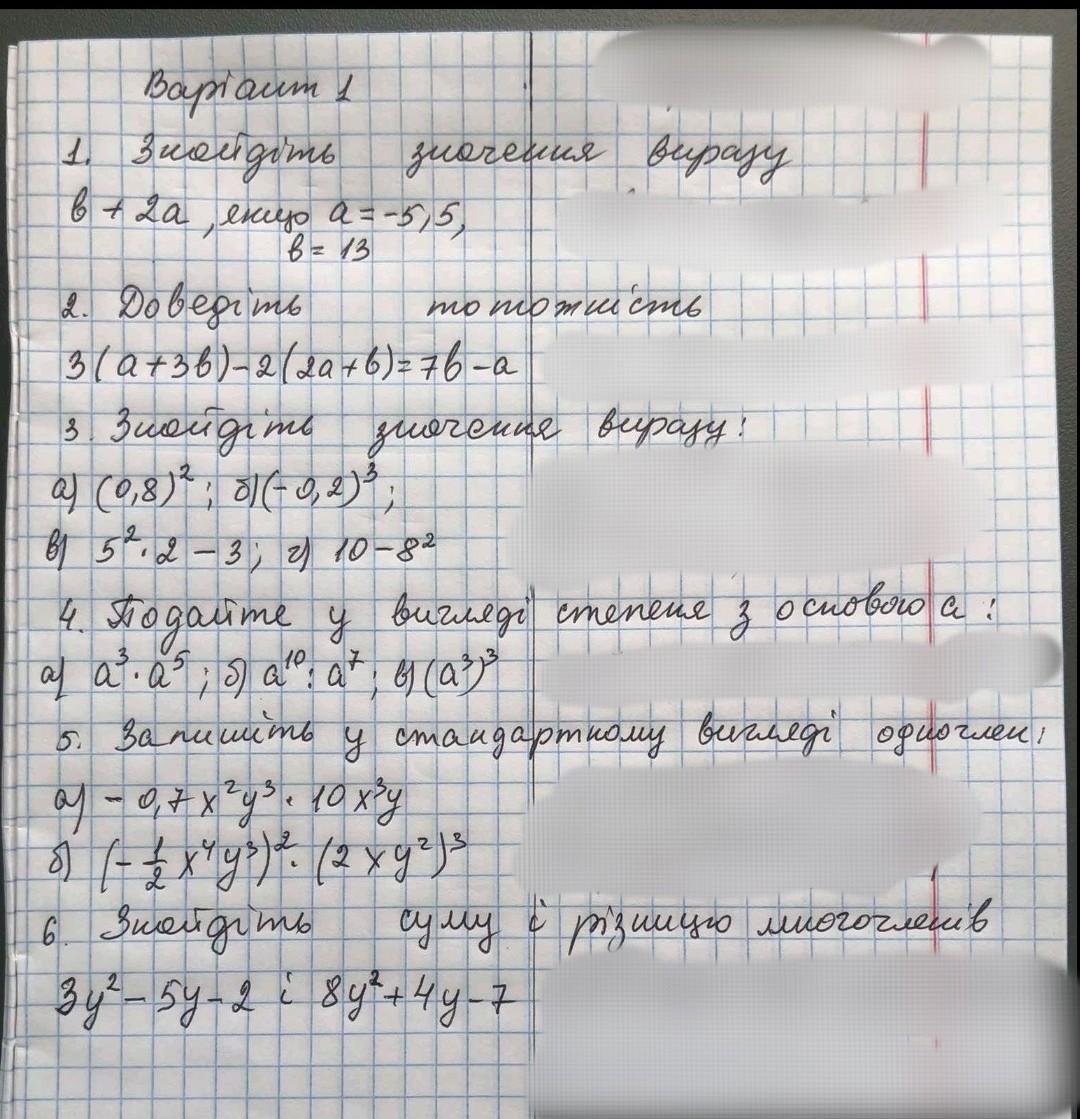 Варіант 1
1. Знайдіть значення виразу
в + 2а, якщо а = -5,5,
в = 13
2. Доведіть тотожність
3(а+3в)-2(2а+в)=7в-а
3. Знайдіть значення виразу:
а) (0,8)²; б)(-0,2)³;
в) 5²·2 - 3; г) 10-8²
4. Подайте у вигляді степеня з основою а:
а) а³·а⁵; б) а¹⁰:а⁷; в)(а³)³
5. Запишіть у стандартному вигляді одночлен:
а) - 0,7x²y³ · 10x³y
б) (-1/2 x⁴y³)² · (2xy²)³
6. Знайдіть суму і різницю многочленів
3y²-5y-2 і 8y²+4y-7